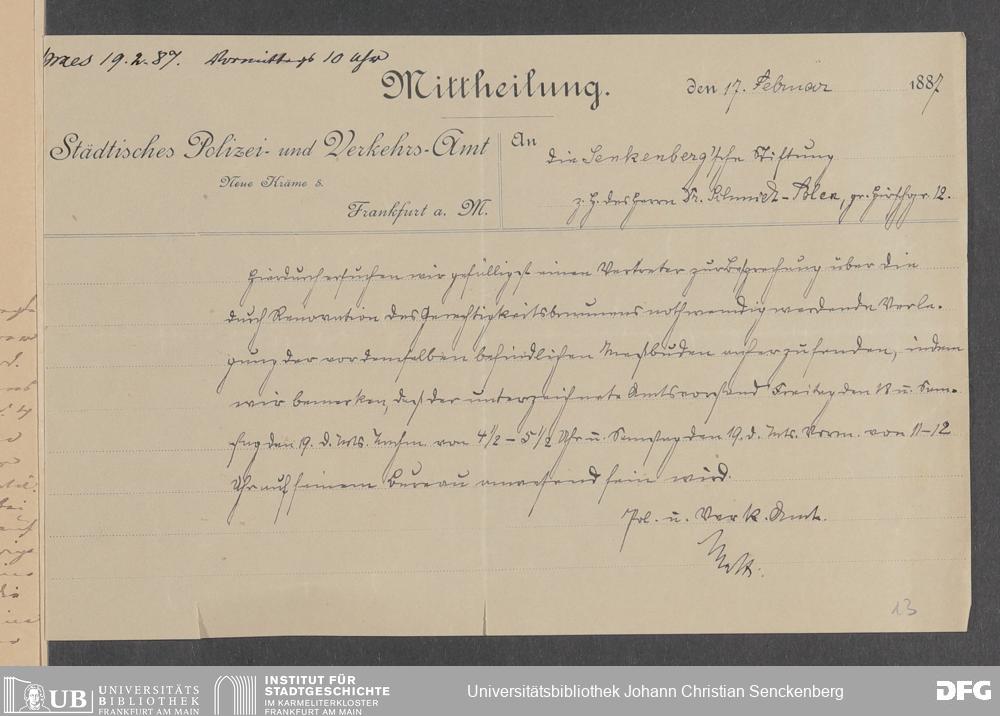 praes 19.2.87. Vormittags 10 Uhr
Mittheilung.
den 17. Februar 1887
Städtisches Polizei- und Verkehrs-Amt
Neue Kräme 8.
Frankfurt a. M.
An
die Senkenberg'sche Stiftung
z. H. des Herrn Dr. Schmidt-Polex, gr. Hirschgr. 12.
Hierdurch ersuchen wir gefälligst einen Vertreter zur Besprechung über die
durch Renovation des Gerechtigkeitsbrunnens nothwendig werdende Verle-
gung der vor demselben befindlichen Meßbuden anher zu senden, indem
wir bemerken, daß der unterzeichnete Amtsvorstand Freitag den 18 u. Sam-
stag den 19. d. Mts. Nachm. von 4 1/2 – 5 1/2 Uhr u. Samstag den 19. d. Mts. Vorm. von 11–12
Uhr auf seinem Bureau anwesend sein wird.
Pol. u. Verk. Amt.
13
UB UNIVERSITÄTS
BIBLIOTHEK
FRANKFURT AM MAIN
INSTITUT FÜR
STADTGESCHICHTE
IM KARMELITERKLOSTER
FRANKFURT AM MAIN
Universitätsbibliothek Johann Christian Senckenberg
DFG